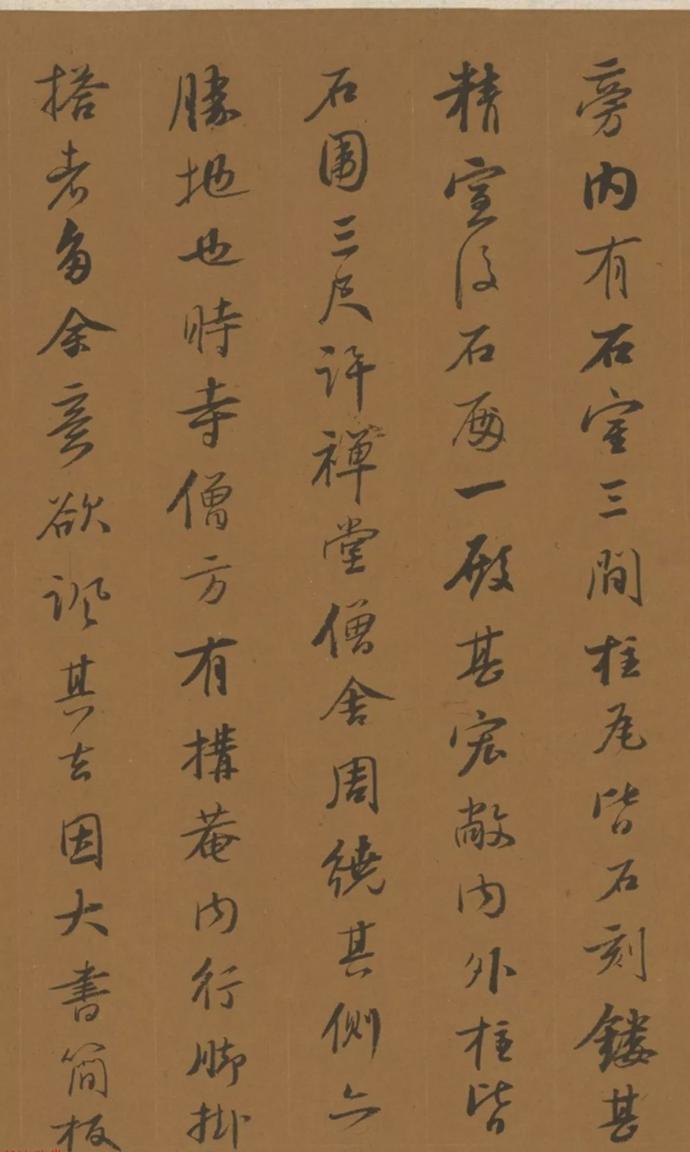 旁内有石室三間柱瓦皆石刻鏤甚
精室後石面一殿甚宏敞内外柱皆
石圍三尺許禪堂僧舍周繞其側亦
勝地也時寺僧方有構菴内行脚掛
搭者多余意欲諷其去因大書簡板